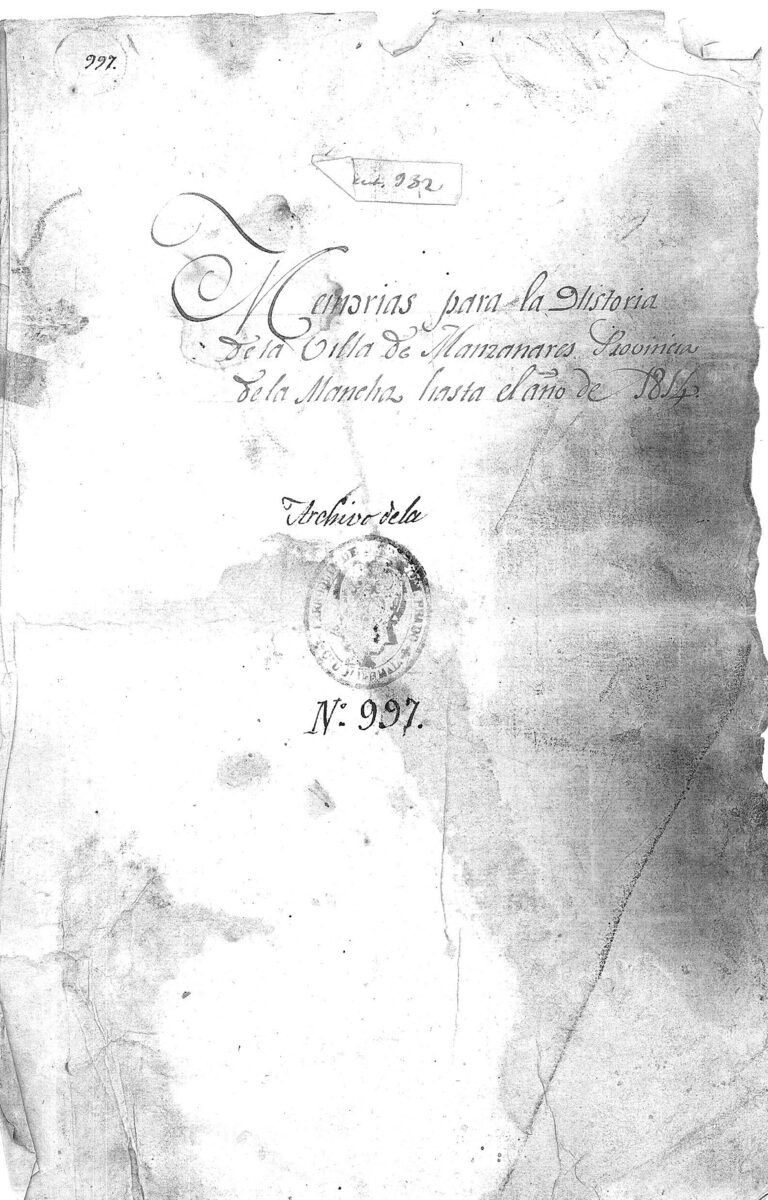 997.
932
Memorias para la Historia
de la Villa de Manzanares Provincia
de la Mancha hasta el año de 1814.
Archivo de la
Nº 997.